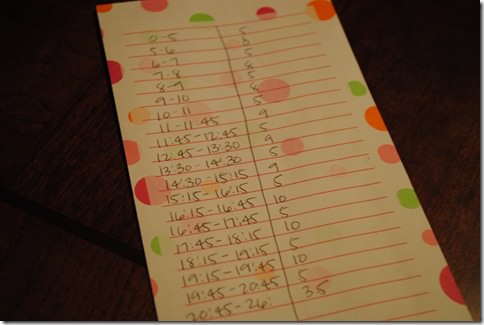 0-5 5
5-6 8
6-7 5
7-8 8
8-9 5
9-10 8
10-11 5
11-11:45 9
11:45-12:45 5
12:45-13:30 9
13:30-14:30 5
14:30-15:15 9
15:15-16:15 5
16:15-16:45 10
16:45-17:45 5
17:45-18:15 10
18:15-19:15 5
19:15-19:45 10
19:45-20:45 5
20:45-26: 35